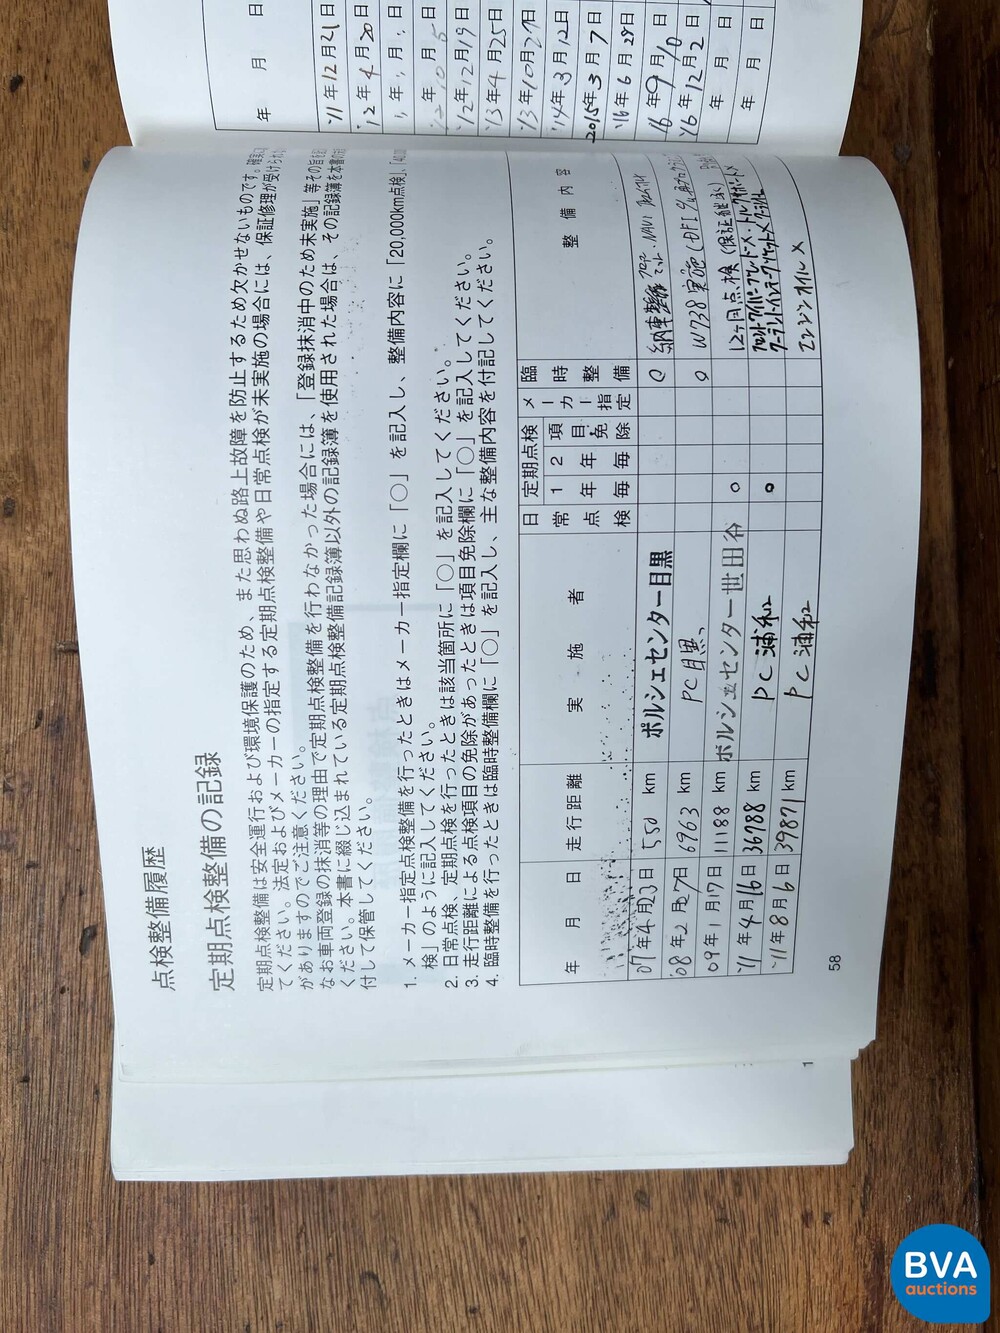 点検整備履歴
定期点検整備の記録
定期点検整備は安全運行および環境保護のため、また思わぬ路上故障を防止するため欠かせないものです。確実に
てください。法定およびメーカーの指定する定期点検整備や日常点検が未実施の場合には、保証修理が受けられない
がありますのでご注意ください。
なお車両登録の抹消等の理由で定期点検整備を行わなかった場合には、「登録抹消中のため未実施」等その旨を
ください。本書に綴じ込まれている定期点検整備記録簿以外の記録簿を使用された場合は、その記録簿を本書の
付して保管してください。
1. メーカー指定点検整備を行ったときはメーカー指定欄に「○」を記入し、整備内容に「20,000km点検」、「40,00
検」のように記入してください。
2. 日常点検、定期点検を行ったときは該当箇所に「○」を記入してください。
3. 走行距離による点検項目の免除があったときは項目免除欄に「○」を記入してください。
4. 臨時整備を行ったときは臨時整備欄に「○」を記入し、主な整備内容を付記してください。
年 月 日 走行距離 実施者 日常点検 定期点検 1年毎 2年毎 項目・免除 メーカー指定 臨時整備 整備内容
'07年4月23日 550 km ポルシェセンター目黒 ○ 納車整備 フロアマット NAVI
'08年2月27日 6963 km PC目黒 ○ W738実施 (DFI
'09年1月17日 11188 km ポルシェセンター世田谷 ○ 12ヶ月点検 (保証継承)
'11年4月16日 36788 km PC浦和 ○
'11年8月6日 39871 km PC浦和 エンジンオイル×
58
年 月 日
'11年12月21日
'12年4月20日
年 月 日
年 月5日
'12年12月19日
'13年4月25日
'13年10月27日
'14年3月12日
2015年3月7日
'16年6月29日
'16年9月10日
'16年12月2日
年 月 日
年 月 日
1
BVA
auctions